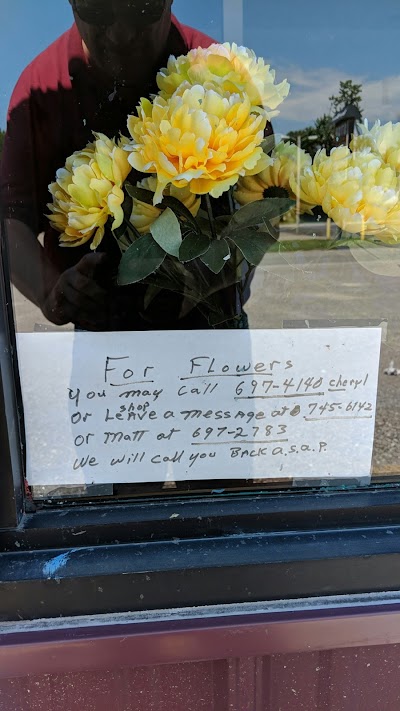 For Flowers
you may call 697-4140 cheryl
shop
or Leave a message at 745-6142
or matt at 697-2783
we will call you Back a.s.a.P.